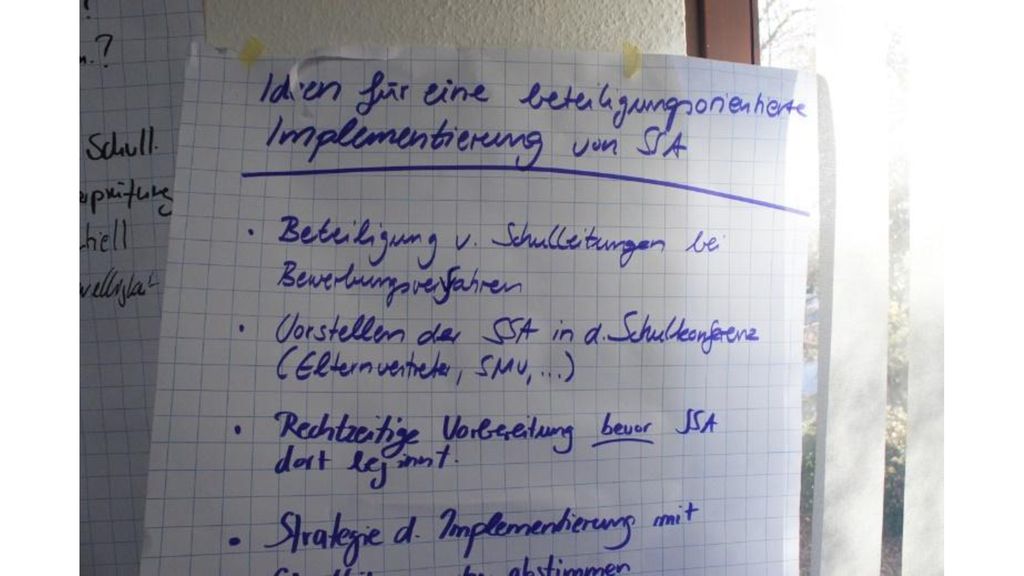 ?
.?
Schull.
Ideen für eine beteiligungsorientierte
Implementierung von SSA
• Beteiligung v. Schulleitungen bei
Bewerbungsverfahren
• Vorstellen der SSA in d. Schulkonferenz
(Elternvertreter, SMV, ...)
• Rechtzeitige Vorbereitung bevor SSA
dort beginnt.
• Strategie d. Implementierung mit
abstimmen